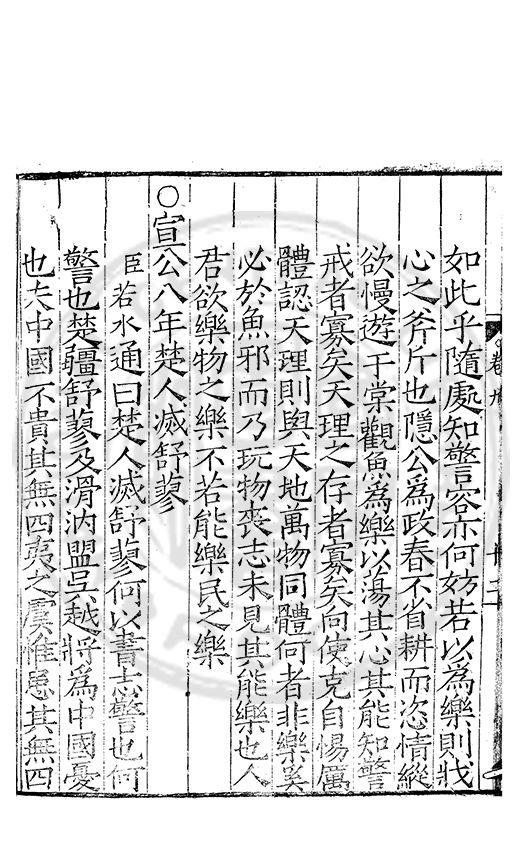 如此乎隨處知警容亦何妨若以為樂則戕
心之斧斤也隱公為政春不省耕而恣情縱
欲慢遊于棠觀魚為樂以蕩其心其能知警
戒者寡矣天理之存者寡矣向使克自惕厲
體認天理則與天地萬物同體何者非樂奚
必於魚邪而乃玩物喪志未見其能樂也人
君欲樂物之樂不若能樂民之樂
○宣公八年楚人滅舒蓼
臣若水通曰楚人滅舒蓼何以書志警也何
警也楚疆舒蓼及滑汭盟吳越將為中國憂
也夫中國不貴其無四夷之虞惟患其無四